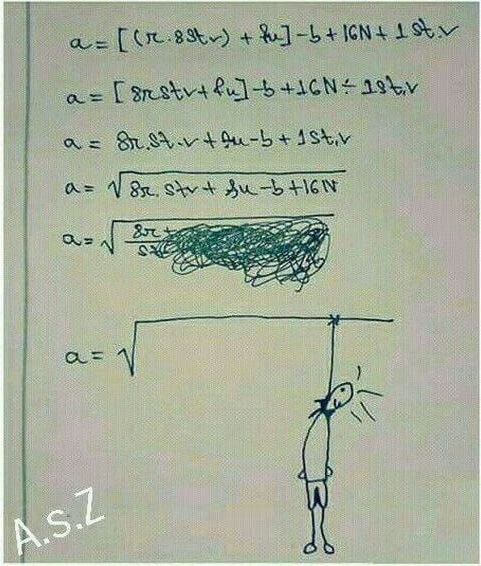 a = [(r.8st.v) + fu] - b + 16N + 1st.v
a = [8rstv + fu] - b + 16N ÷ 1st.v
a = 8r.st.v + fu - b + 1st.v
a = √8r.stv + fu - b + 16N
a = √8r
a = √
A.S.Z